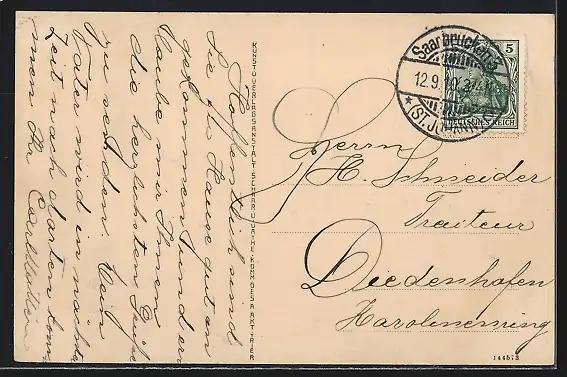 Hoffentlich sind
Sie zu Hause gut an
gekommen und er
laube mir Ihnen
die herzlichsten Grüße
zu senden. Mein
Vater wird in nächster
Zeit nach dorten kom
men Ihr
KUNST U. VERLAGSANSTALT SCHAAR U. DATHE KOMM. GES. A. AKT. TRIER
Saarbrücken 3
12.9.10.
* (ST. JOHANN)
5
DEUTSCHES REICH
Herrn
H. Schneider
Traiteur
Diedenhofen
Karolinenring
144573